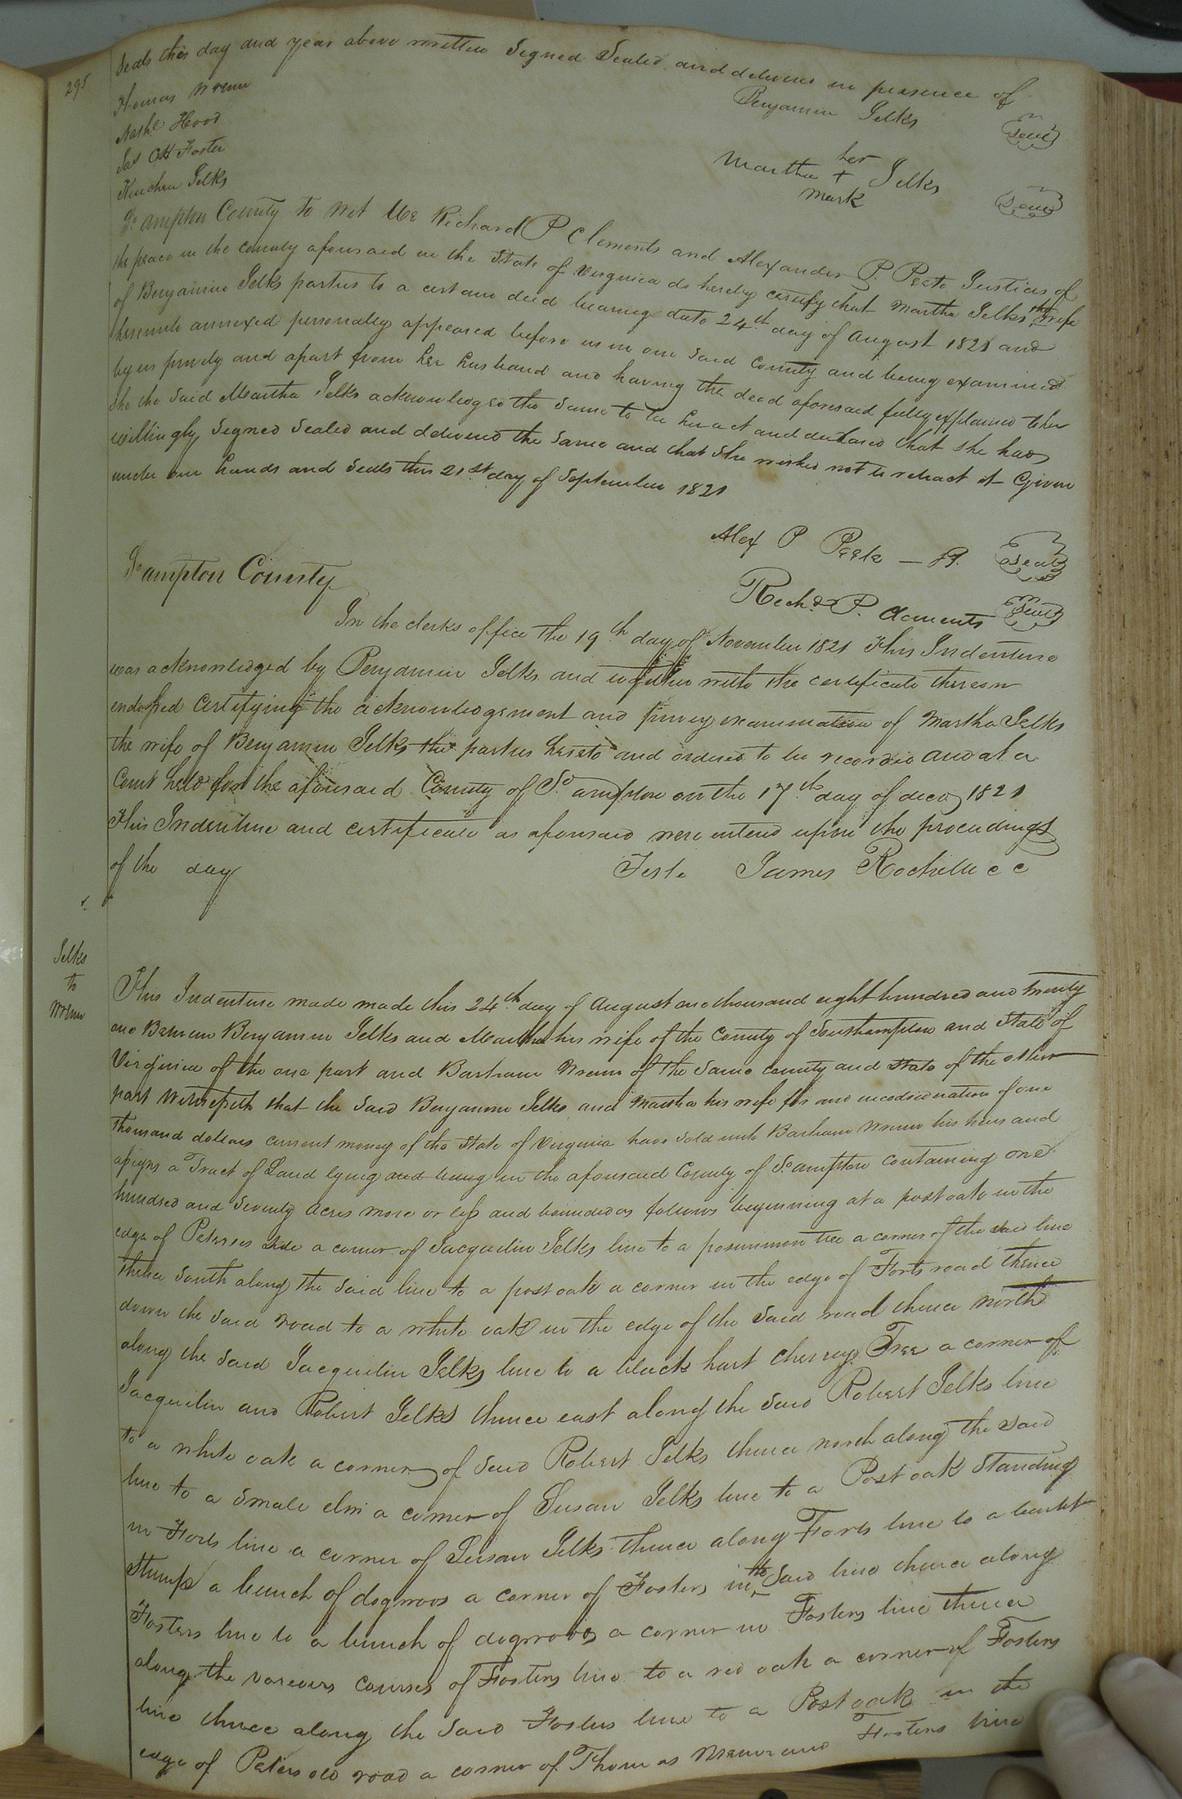 295
Seals this day and year above written Signed Sealed and delivered in presence of
Thomas Wrenn
Benjamin Jelks Seal
Nashe Hood
Foster
her
Martha + Jelks Seal
mark
Kinchen Jelks
So ampton County to wit We Richard P Clements and Alexander P. Peete Justices of
the peace in the county aforesaid in the State of Virginia do hereby certify that Martha Jelks the wife
of Benjamin Jelks parties to a certain deed bearing date 24th day of August 1821 and
hereunto annexed personally appeared before us in our said county and being examined
by us privily and apart from her husband and having the deed aforesaid fully explained to her
she the said Martha Jelks acknowledged the same to be her act and declared that she had
willingly signed sealed and delivered the same and that she wished not to retract it Given
under our hands and seals this 21st day of September 1821
Alex P Peete Seal
So ampton County
Richd P. Clements Seal
In the clerks office the 19th day of November 1821 This Indenture
was acknowledged by Benjamin Jelks and together with the certificate thereon
endorsed certifying the acknowledgement and privy examination of Martha Jelks
the wife of Benjamin Jelks the parties hereto and ordered to be recorded and at a
Court held for the aforesaid County of So ampton on the 17th day of decr 1821
This Indenture and certificate as aforesaid were entered upon the proceedings
of the day
Teste James Rochelle c c
Jelks
to
Wrenn
This Indenture made made this 24th day of August one thousand eight hundred and twenty
one Between Benjamin Jelks and Martha his wife of the County of Southampton and State of
Virginia of the one part and Bartram Wrenn of the same county and state of the other
part Witnesseth that the said Benjamin Jelks and Martha his wife for and inconsideration of one
thousand dollars current money of the State of Virginia have sold unto Bartram Wrenn his heirs and
assigns a Tract of Land lying and being in the aforesaid County of So ampton containing one
hundred and seventy acres more or less and bounded as follows beginning at a post oak in the
edge of Petersis a corner of Jacquelin Jelks line to a posimmon tree a corner of the said line
thence south along the said line to a post oak a corner in the edge of Forts road thence
down the said road to a white oak in the edge of the said road thence north
along the said Jacquelin Jelks line to a black hart cherry Tree a corner of
Jacquelin and Robert Jelks thence east along the said Robert Jelks line
to a white oak a corner of said Robert Jelks thence north along the said
line to a small elm a corner of Susan Jelks line to a Post oak standing
in Forts line a corner of Susan Jelks thence along Forts line to a burnt
stump a bunch of dogwoos a corner of Fosters in the said line thence along
Fosters line to a bunch of dogwoods a corner in Fosters line thence
along the various courses of Fosters line to a red oak a corner of Fosters
line thence along the said Fosters line to a Post oak in the
edge of Peters old road a corner of Thomas Wrenn and Fosters line